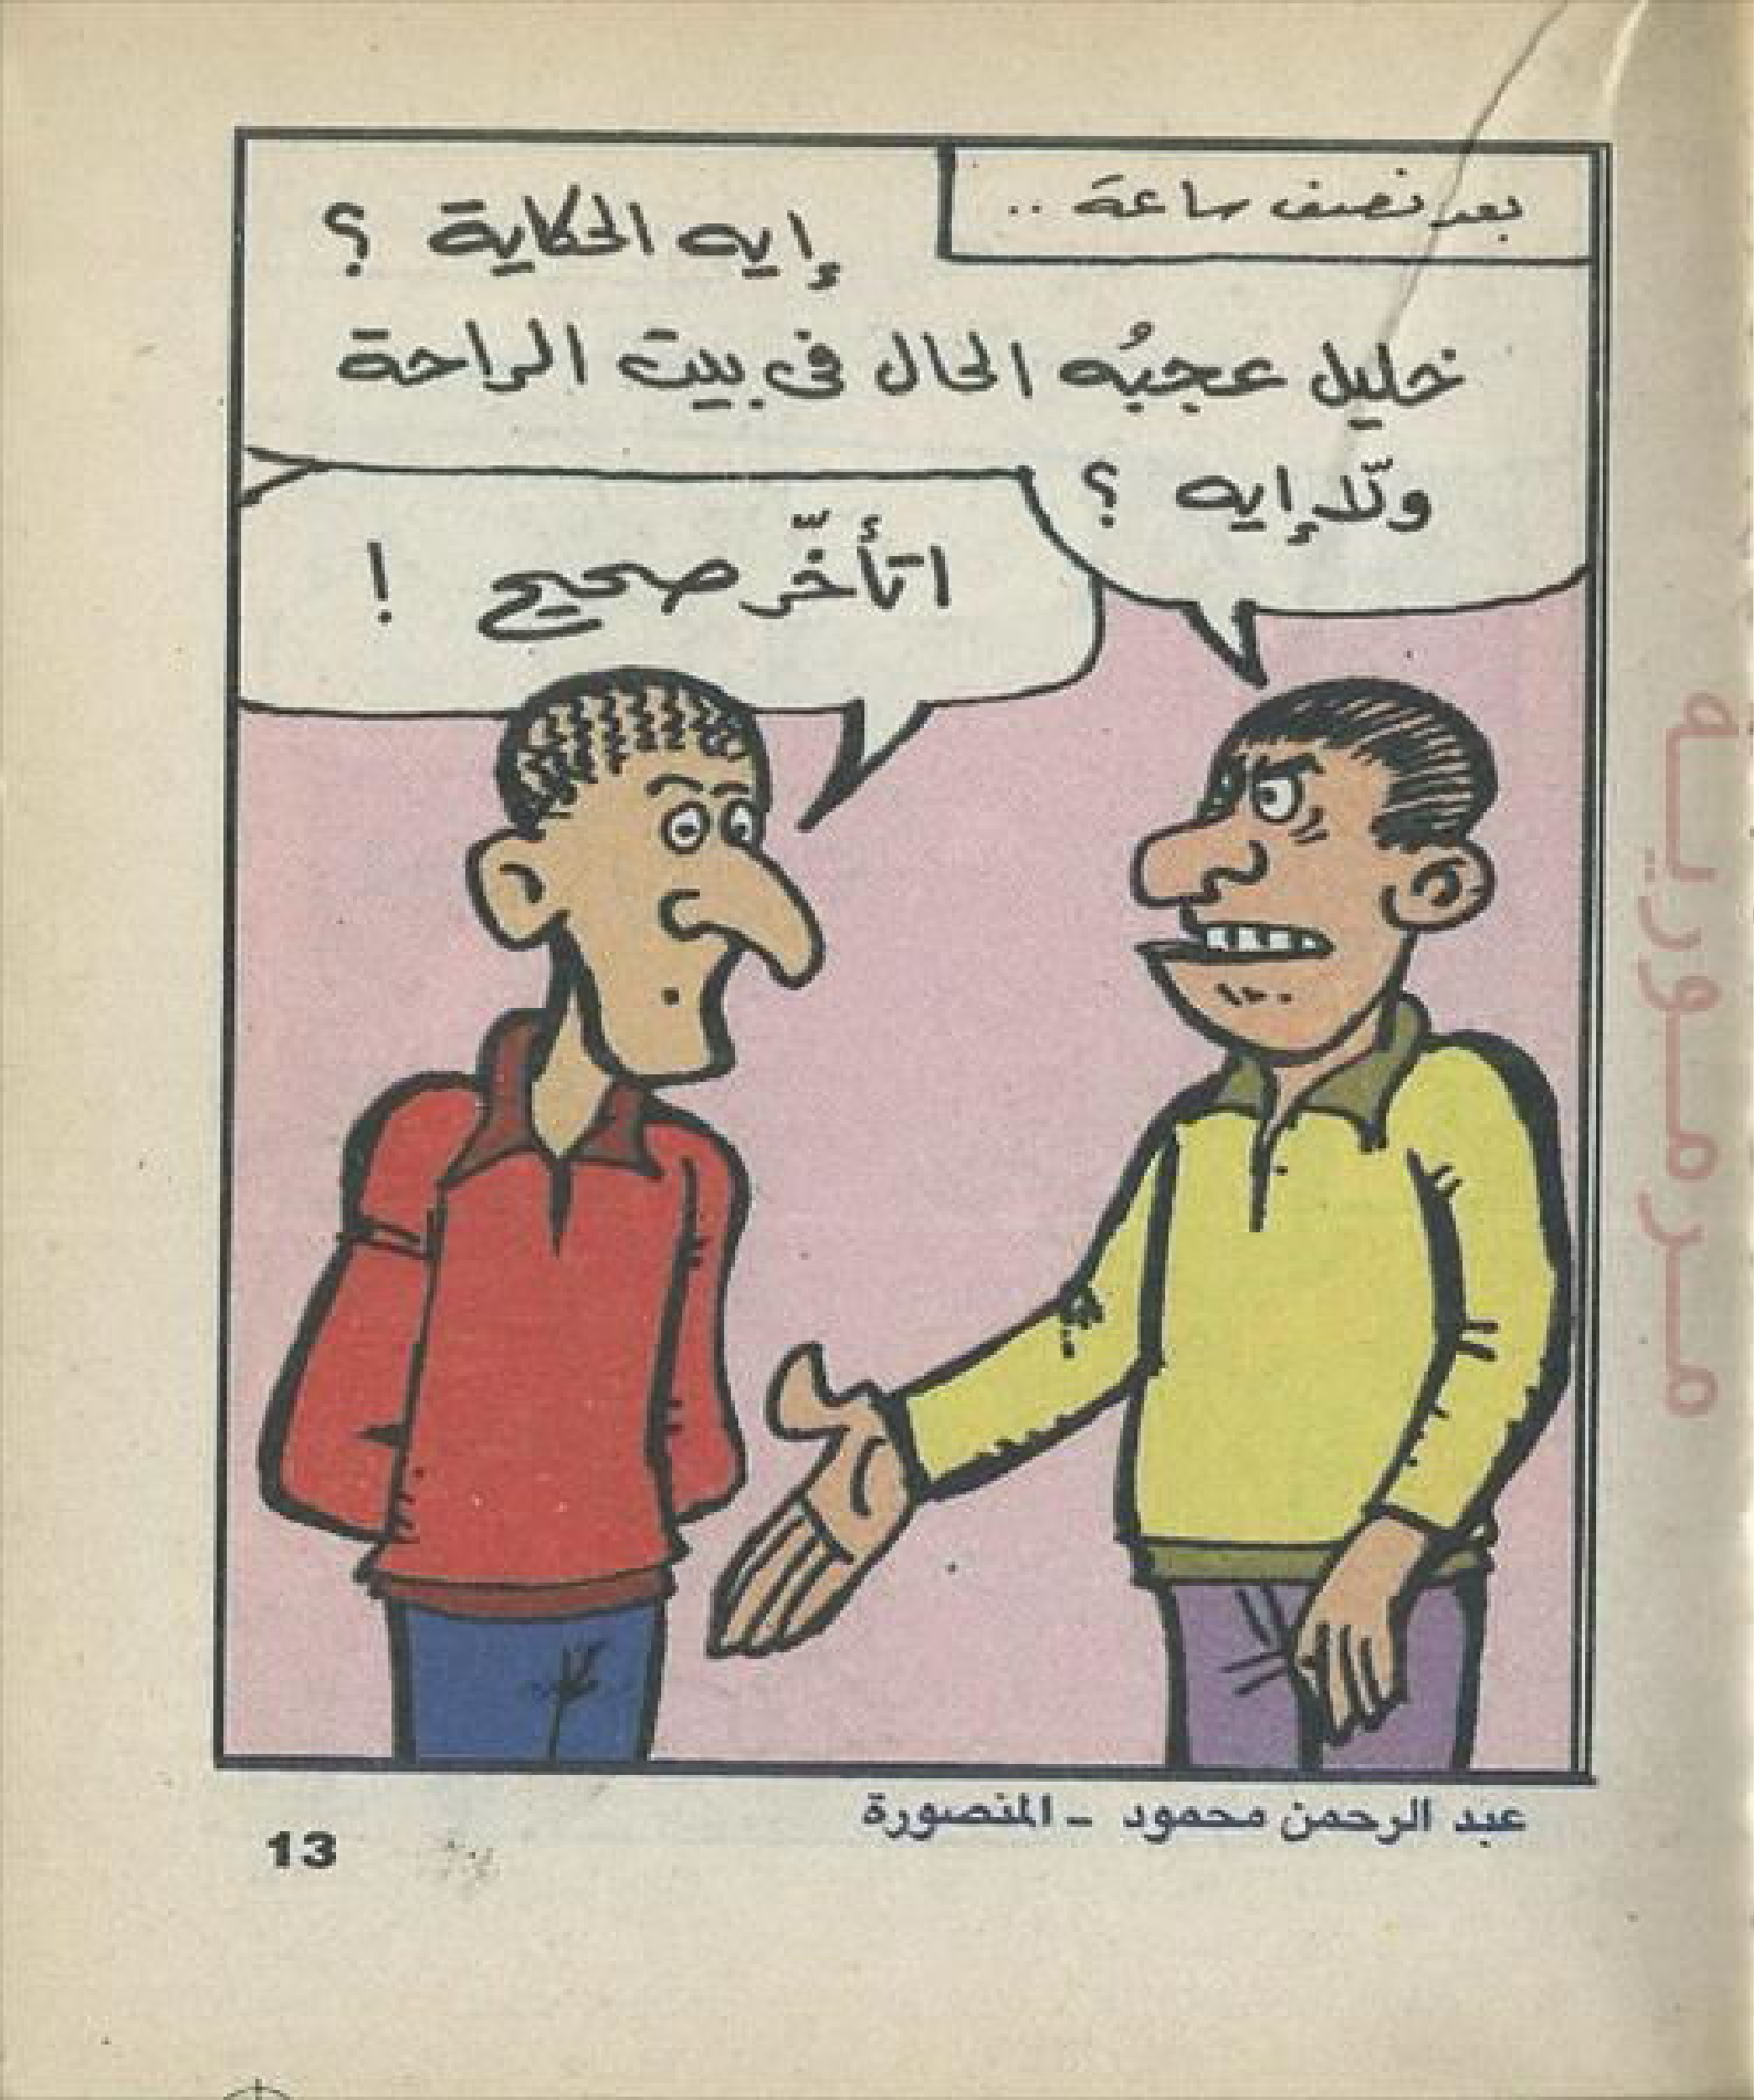 بعد نصف ساعة ..
إيه الحكاية ؟
خليل عجبُه الحال فى بيت الراحة
ولّا إيه ؟
اتأخّر صحيح !
عبد الرحمن محمود - المنصورة
13